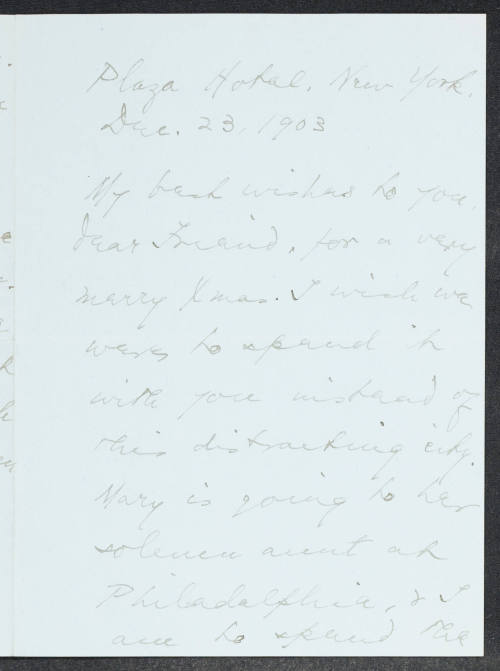 Plaza Hotel, New York,
Dec. 23, 1903
My best wishes to you,
dear Friend, for a very
merry Xmas. I wish we
were to spend it
with you instead of
this distracting city.
Mary is going to her
solemn aunt at
Philadelphia, & I
am to spend the